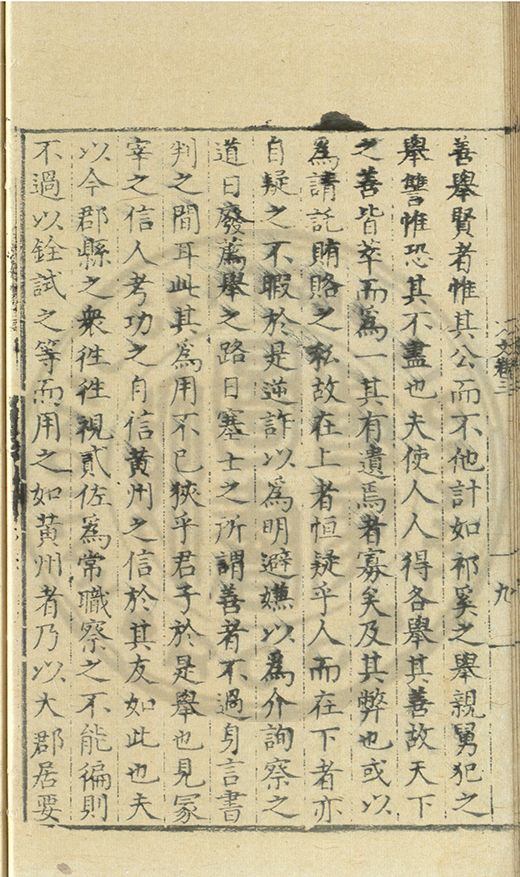 善舉賢者惟其公而不他計如祁奚之舉親舅犯之
舉讐惟恐其不盡也夫使人人得各舉其善故天下
之善皆萃而為一其有遺焉者寡矣及其弊也或以
為請託賄賂之私故在上者恒疑乎人而在下者亦
自疑之不暇於是逆詐以為明避嫌以為介詢察之
道日廢薦舉之路日塞士之所謂善者不過身言書
判之間耳此其為用不已狹乎君子於是舉也見冢
宰之信人考功之自信黃州之信於其友如此也夫
以今郡縣之衆徃徃視貳佐為常職察之不能徧則
不過以銓試之等而用之如黃州者乃以大郡居要
卷三
九